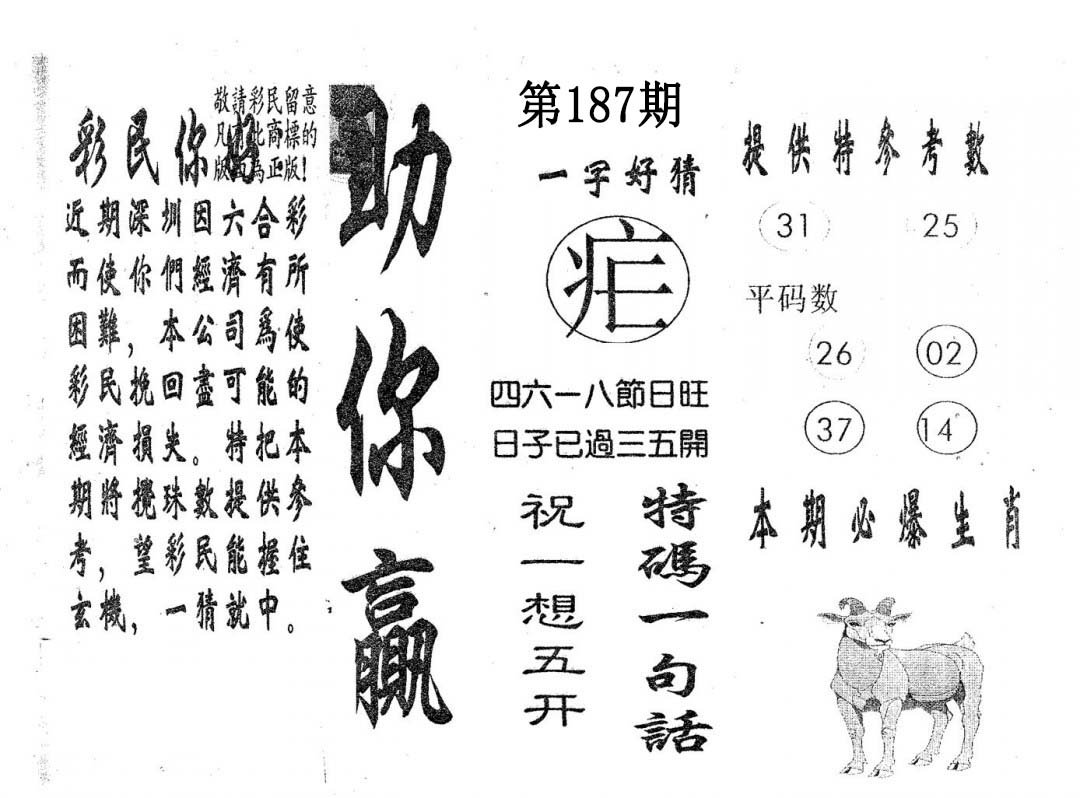 敬請彩民留意
凡此商標的
版為正版！
彩民你好
近期深圳因六合彩
而使你們經濟有所
困難，本公司爲使
彩民挽回盡可能的
經濟損失。特把本
期將攪珠數提供參
考，望彩民能握住
玄機，一猜就中。
助你贏
第187期
一字好猜
四六一八節日旺
日子已過三五開
特碼一句話
祝一想五开
提供特參考數
31 25
平码数
26 02
37 14
本期必爆生肖